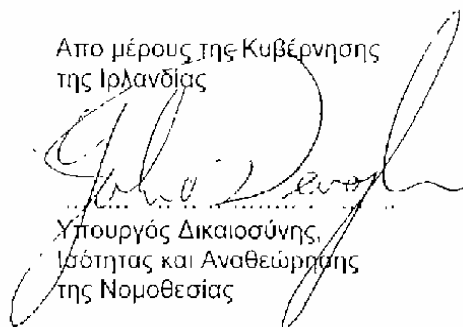 Απο μέρους της Κυβέρνησης
της Ιρλανδίας
John
Υπουργός Δικαιοσύνης,
Ισότητας και Αναθεώρησης
της Νομοθεσίας